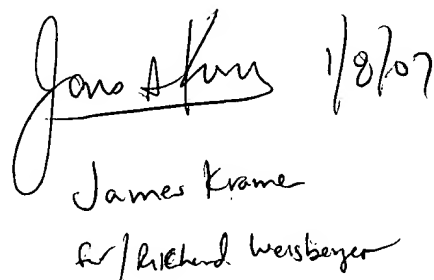 James A Kramer 1/8/07
James Kramer
for/Richard Weisberger